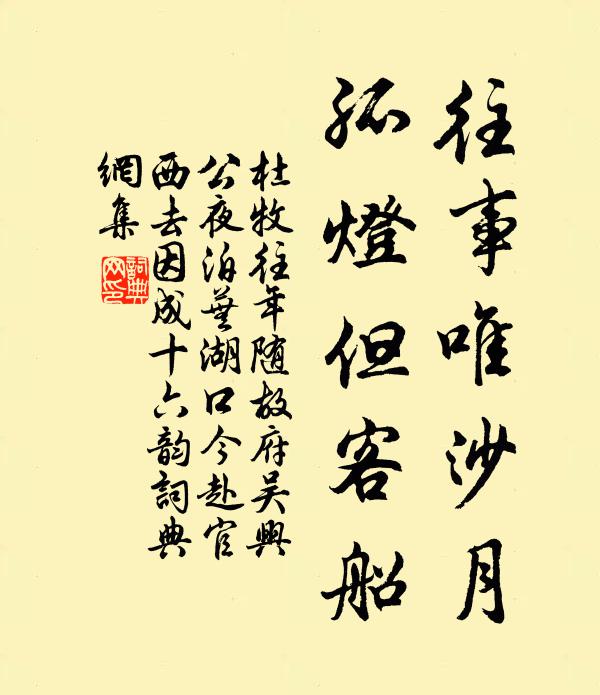 往事唯沙月
孤燈但客船
杜牧往年随故府吴興
公夜泊蕪湖口今赴官
西去因成十六韵詞典
網集
詞典
网印